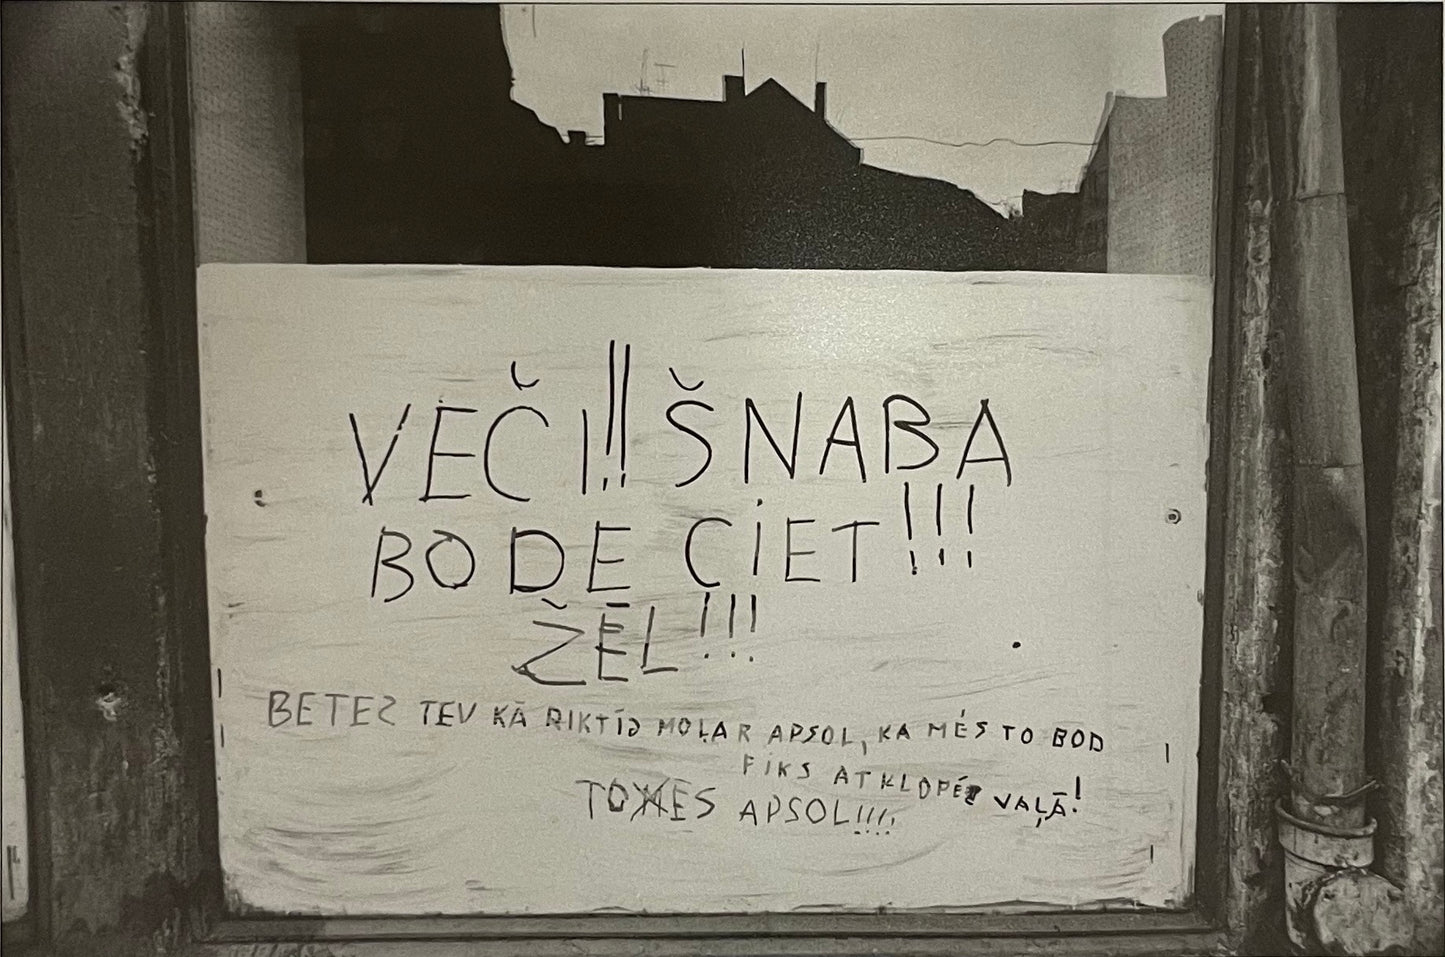 VEČI!! ŠNABA
BODE CIET!!!
ŽĒL!!!
BET ES TEV KĀ RIKTĪG MOĻAR APSOL, KA MĒS TO BOD
FIKS ATKLOPĒ VAĻĀ!
ES APSOL!!!!